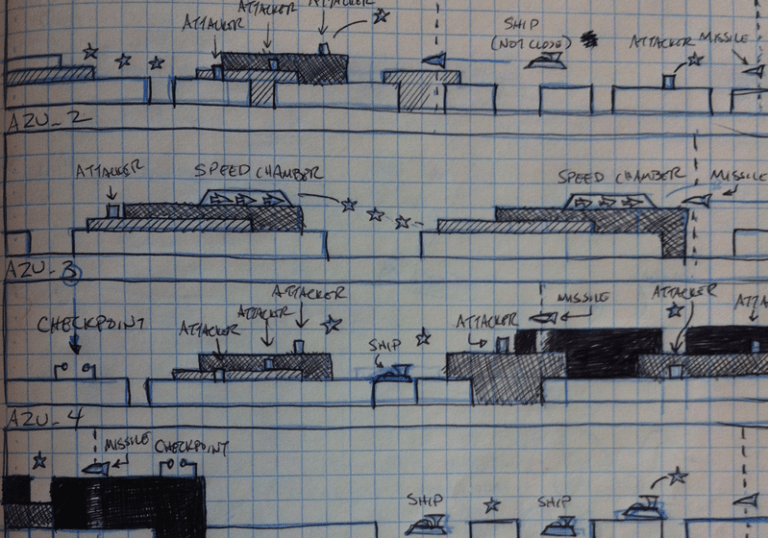 ATTACKER
ATTACKER
ATTACKER
SHIP
(NOT CLOSE)
ATTACKER
MISSILE
AZU_2
ATTACKER
SPEED CHAMBER
SPEED CHAMBER
MISSILE
AZU_3
CHECKPOINT
ATTACKER
ATTACKER
ATTACKER
SHIP
ATTACKER
MISSILE
ATTACKER
ATTA
AZU_4
MISSILE
CHECKPOINT
SHIP
SHIP